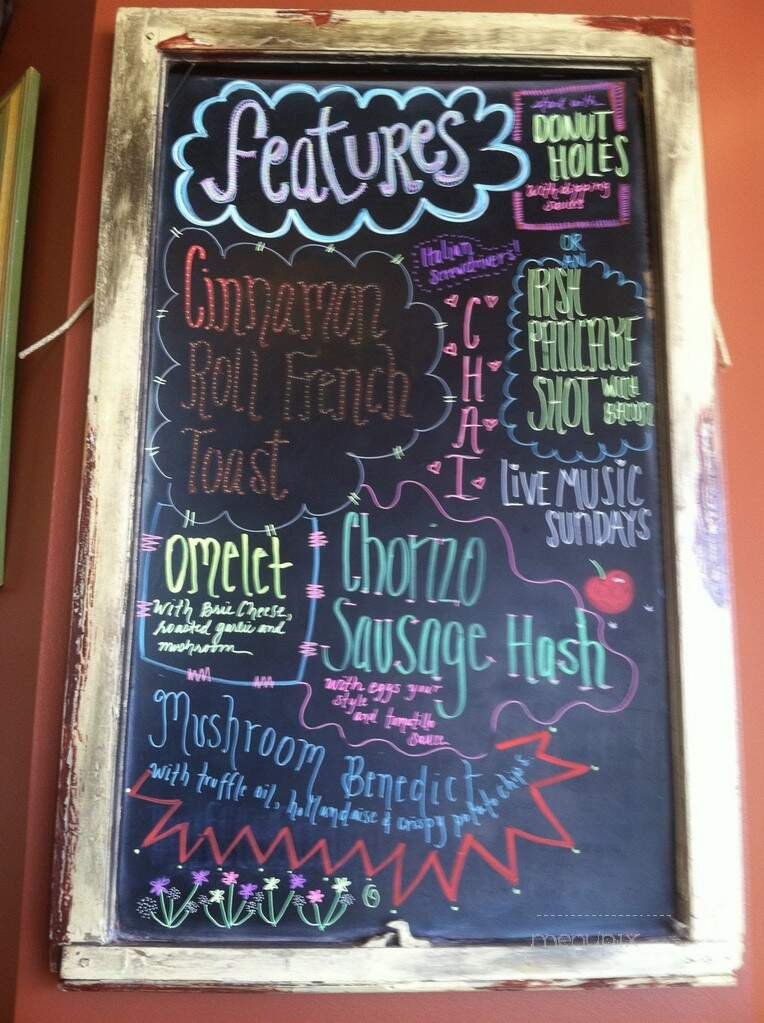 Features
start with
DONUT
HOLES
with dipping
sauces
OR
AN
IRISH
PANCAKE
SHOT with
BACON
Italian
Screwdrivers!
CHAI
Cinnamon
Roll French
Toast
LIVE MUSIC
SUNDAYS
Omelet
With Brie Cheese,
roasted garlic and
mushroom
Chorizo
Sausage Hash
with eggs your
style
and tomatillo
sauce
Mushroom Benedict
with truffle oil, hollandaise & crispy potato chips
menupix